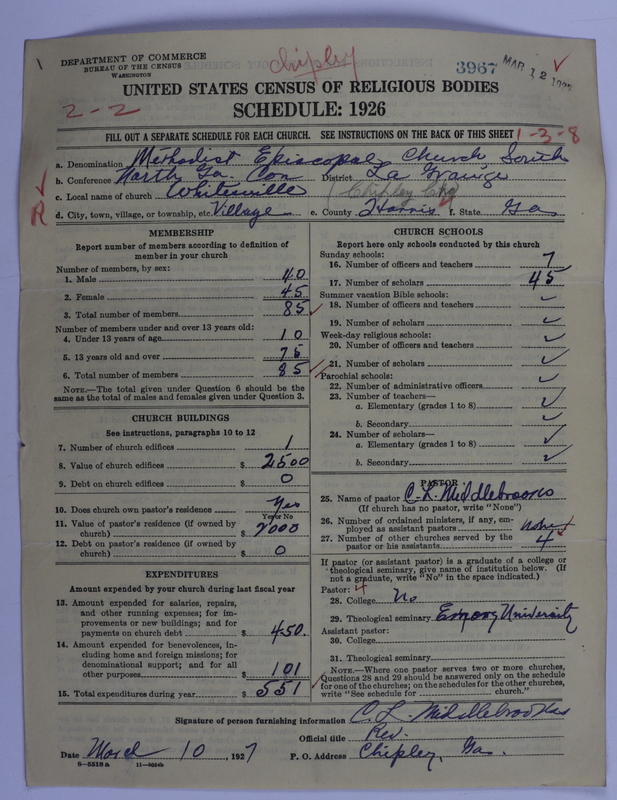 Chipley
DEPARTMENT OF COMMERCE
BUREAU OF THE CENSUS
WASHINGTON
3967
MAR 12
UNITED STATES CENSUS OF RELIGIOUS BODIES
2-2
SCHEDULE: 1926
FILL OUT A SEPARATE SCHEDULE FOR EACH CHURCH. SEE INSTRUCTIONS ON THE BACK OF THIS SHEET
1-3-8
a. Denomination Methodist Episcopal Church, South
b. Conference North Ga. Con District La Grange
c. Local name of church Whitesville (Chipley Chg)
R
d. City, town, village, or township, etc. Village e. County Harris f. State Ga
MEMBERSHIP
Report number of members according to definition of
member in your church
Number of members, by sex:
1. Male 40
2. Female 45
3. Total number of members 85
Number of members under and over 13 years old:
4. Under 13 years of age 10
5. 13 years old and over 75
6. Total number of members 85
NOTE.—The total given under Question 6 should be
same as the total of males and females given under Question 3.
CHURCH BUILDINGS
See instructions, paragraphs 10 to 12
7. Number of church edifices 1
8. Value of church edifices $ 2500
9. Debt on church edifices $ 0
10. Does church own pastor's residence Yes
Yes or No
11. Value of pastor's residence (if owned by
church) $ 2000
12. Debt on pastor's residence (if owned by
church) $ 0
EXPENDITURES
Amount expended by your church during last fiscal year
13. Amount expended for salaries, repairs,
and other running expenses; for im-
provements or new buildings; and for
payments on church debt $ 450.
14. Amount expended for benevolences, in-
cluding home and foreign missions; for
denominational support; and for all
other purposes $ 101
15. Total expenditures during year $ 551
CHURCH SCHOOLS
Report here only schools conducted by this church
Sunday schools:
16. Number of officers and teachers 7
17. Number of scholars 45
Summer vacation Bible schools:
18. Number of officers and teachers
19. Number of scholars
Week-day religious schools:
20. Number of officers and teachers
21. Number of scholars
Parochial schools:
22. Number of administrative officers
23. Number of teachers—
a. Elementary (grades 1 to 8)
b. Secondary
24. Number of scholars—
a. Elementary (grades 1 to 8)
b. Secondary
PASTOR
25. Name of pastor C. L. Middlebrooks
(If church has no pastor, write "None")
26. Number of ordained ministers, if any, em-
ployed as assistant pastors none
27. Number of other churches served by the
pastor or his assistants 4
If pastor (or assistant pastor) is a graduate of a college or
theological seminary, give name of institution below. (If
not a graduate, write "No" in the space indicated.)
Pastor: 4
28. College No
29. Theological seminary Emory University
Assistant pastor:
30. College
31. Theological seminary
NOTE.—Where one pastor serves two or more churches,
Questions 28 and 29 should be answered only on the schedule
for one of the churches; on the schedules for the other churches,
write "See schedule for church."
Signature of person furnishing information C. L. Middlebrooks
Official title Rev.
Date March 10, 1927 P. O. Address Chipley, Ga.
8—5518a 11—9024b